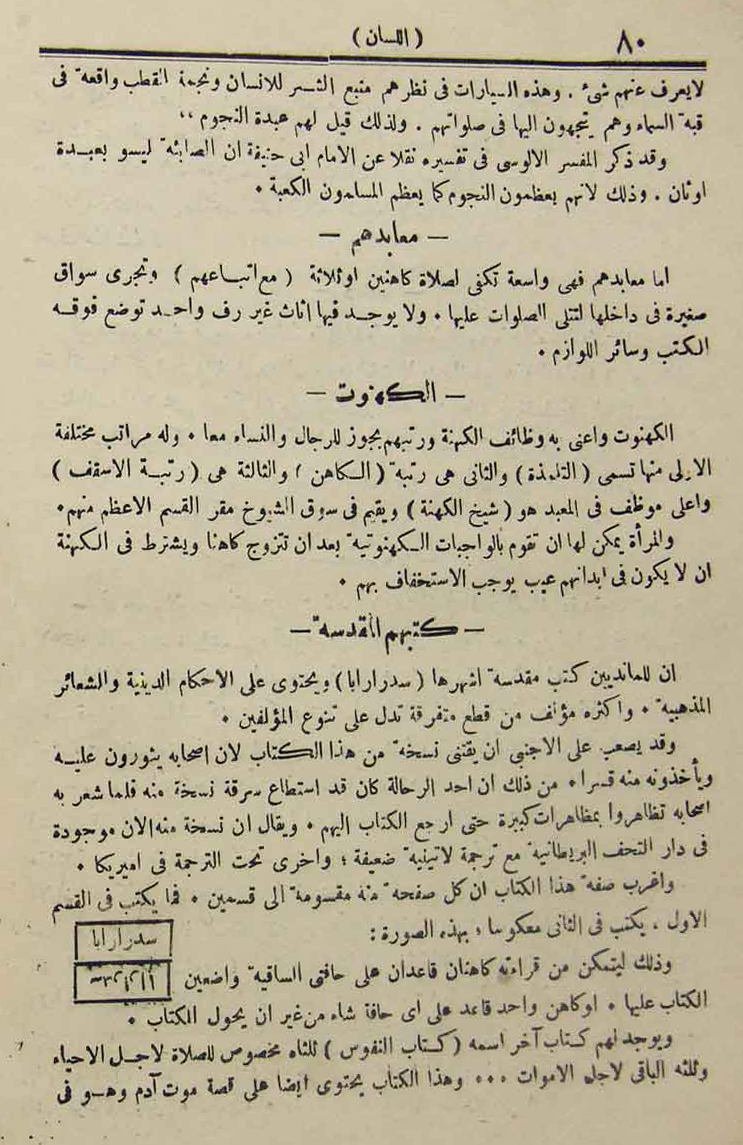 ٨٠ ( اللسان )
لايعرف عنهم شىء . وهذه السيارات فى نظرهم منبع الشر للانسان ونجمة القطب واقعة فى
قبة السماء وهم يتجهون اليها فى صلواتهم . ولذلك قيل لهم عبدة النجوم ،،
وقد ذكر المفسر الالوسى فى تفسيره نقلا عن الامام ابى حنيفة ان الصابئة ليسو بعبدة
اوثان . وذلك لانهم يعظمون النجوم كما يعظم المسلمون الكعبة •
— معابدهم —
اما معابدهم فهى واسعة تكفى لصلاة كاهنين اوثلاثة ( مع اتباعهم ) وتجرى سواق
صغيرة فى داخلها لتتلى الصلوات عليها • ولا يوجد فيها اثاث غير رف واحد توضع فوقه
الكتب وسائر اللوازم •
— الكهنوت —
الكهنوت واعنى به وظائف الكهنة ورتبهم يجوز للرجال والنساء معا • وله مراتب مختلفة
الاولى منها تسمى ( التلمذة ) والثانى هى رتبة ( الكاهن ) والثالثة هى ( رتبة الاسقف )
واعلى موظف فى المعبد هو ( شيخ الكهنة ) ويقيم فى سوق الشيوخ مقر القسم الاعظم منهم •
والمرأة يمكن لها ان تقوم بالواجبات الكهنوتية بعد ان تتزوج كاهنا ويشترط فى الكهنة
ان لا يكون فى ابدانهم عيب يوجب الاستخفاف بهم •
— كتبهم المقدسة —
ان للمانديين كتب مقدسة اشهرها ( سدرارابا ) ويحتوى على الاحكام الدينية والشعائر
المذهبية • واكثره مؤلف من قطع متفرقة تدل على تنوع المؤلفين •
وقد يصعب على الاجنبى ان يقتنى نسخة من هذا الكتاب لان اصحابه يثورون عليه
ويأخذونه منه قسرا • من ذلك ان احد الرحالة كان قد استطاع سرقة نسخة منه فلما شعر به
اصحابه تظاهروا بمظاهرات كبيرة حتى ارجع الكتاب اليهم • ويقال ان نسخة منه الان موجودة
فى دار التحف البريطانية مع ترجمة لاتينية ضعيفة ؛ واخرى تحت الترجمة فى اميريكا •
واغرب صفة هذا الكتاب ان كل صفحة منه مقسومة الى قسمين • فما يكتب فى القسم
الاول ، يكتب فى الثانى معكوسا ؛ بهذه الصورة :
سدرارابا
سدرارابا
وذلك ليتمكن من قراءته كاهنان قاعدان على حافتى الساقية واضعين
الكتاب عليها • اوكاهن واحد قاعد على اى حافة شاء من غير ان يحول الكتاب •
ويوجد لهم كتاب آخر اسمه ( كتاب النفوس ) ثلثاه مخصوص للصلاة لاجل الاحياء
وثلثه الباقى لاجل الاموات ••• وهذا الكتاب يحتوى ايضا على قصة موت آدم وهو فى